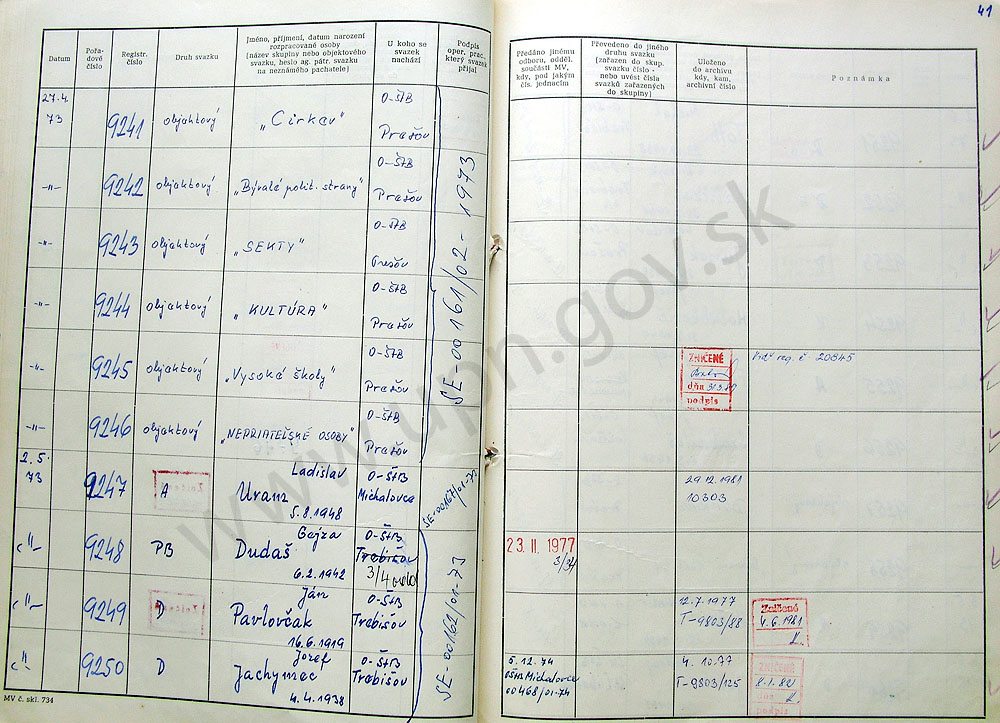 41
Datum
Pořa-
dové
číslo
Registr.
číslo
Druh svazku
Jméno, příjmení, datum narození
rozpracované osoby
(název skupiny nebo objektového
svazku, heslo ag. pátr. svazku
na neznámého pachatele)
U koho se
svazek
nachází
Podpis
oper. prac.,
který svazek
přijal
Předáno jinému
odboru, odděl.
součásti MV,
kdy, pod jakým
čís. jednacím
Převedeno do jiného
druhu svazku
(zařazen do skup.
svazku číslo -
nebo uvést čísla
svazků zařazených
do skupiny)
Uloženo
do archivu
kdy, kam,
archivní číslo
Poznámka
27.4.
73
9241
objektový
„Cirkev"
O-ŠtB
Prešov
-"-
9242
objektový
„Bývalé polit. strany"
O-ŠtB
Prešov
-"-
9243
objektový
„SEKTY"
O-ŠtB
Prešov
-"-
9244
objektový
„KULTÚRA"
O-ŠtB
Prešov
-"-
9245
objektový
„Vysoké školy"
O-ŠtB
Prešov
ZNIČENÉ
dňa
podpis
reg. č - 20845
-"-
9246
objektový
„NEPRIATEĽSKÉ OSOBY"
O-ŠtB
Prešov
SE-00161/02-1973
2.5.
73
9247
A
Ladislav
Uram
5.8.1948
O-ŠtB
Michalovce
29.12.1981
10303
-"-
9248
PB
Gejza
Dudaš
6.2.1942
O-ŠtB
Trebišov
3/4
23. II. 1977
3/34
-"-
9249
D
Ján
Pavlovčak
16.6.1919
O-ŠtB
Trebišov
12.7.1977
T-9803/88
Zničené
4.6.1981
-"-
9250
D
Jozef
Jachymec
4.4.1938
O-ŠtB
Trebišov
SE-00162/01-73
5.12.74
OŠtB Michalovce
00468/01-74
4.10.77
T-9803/125
ZNIČENÉ
dňa
podpis
MV č. skl. 734
www.upn.gov.sk